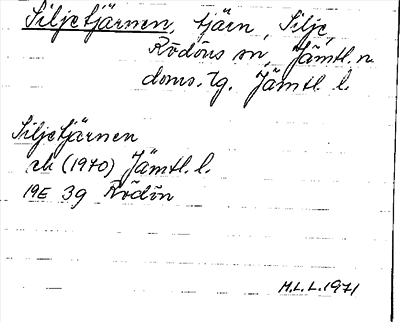 Siljetjärnen, tjärn, Silje,
Rödöns sn, Jämtl. n.
doms. tg. Jämtl. l.
Siljetjärnen
rk (1970) Jämtl. l.
19E 3g Rödön
M.L.L. 1971